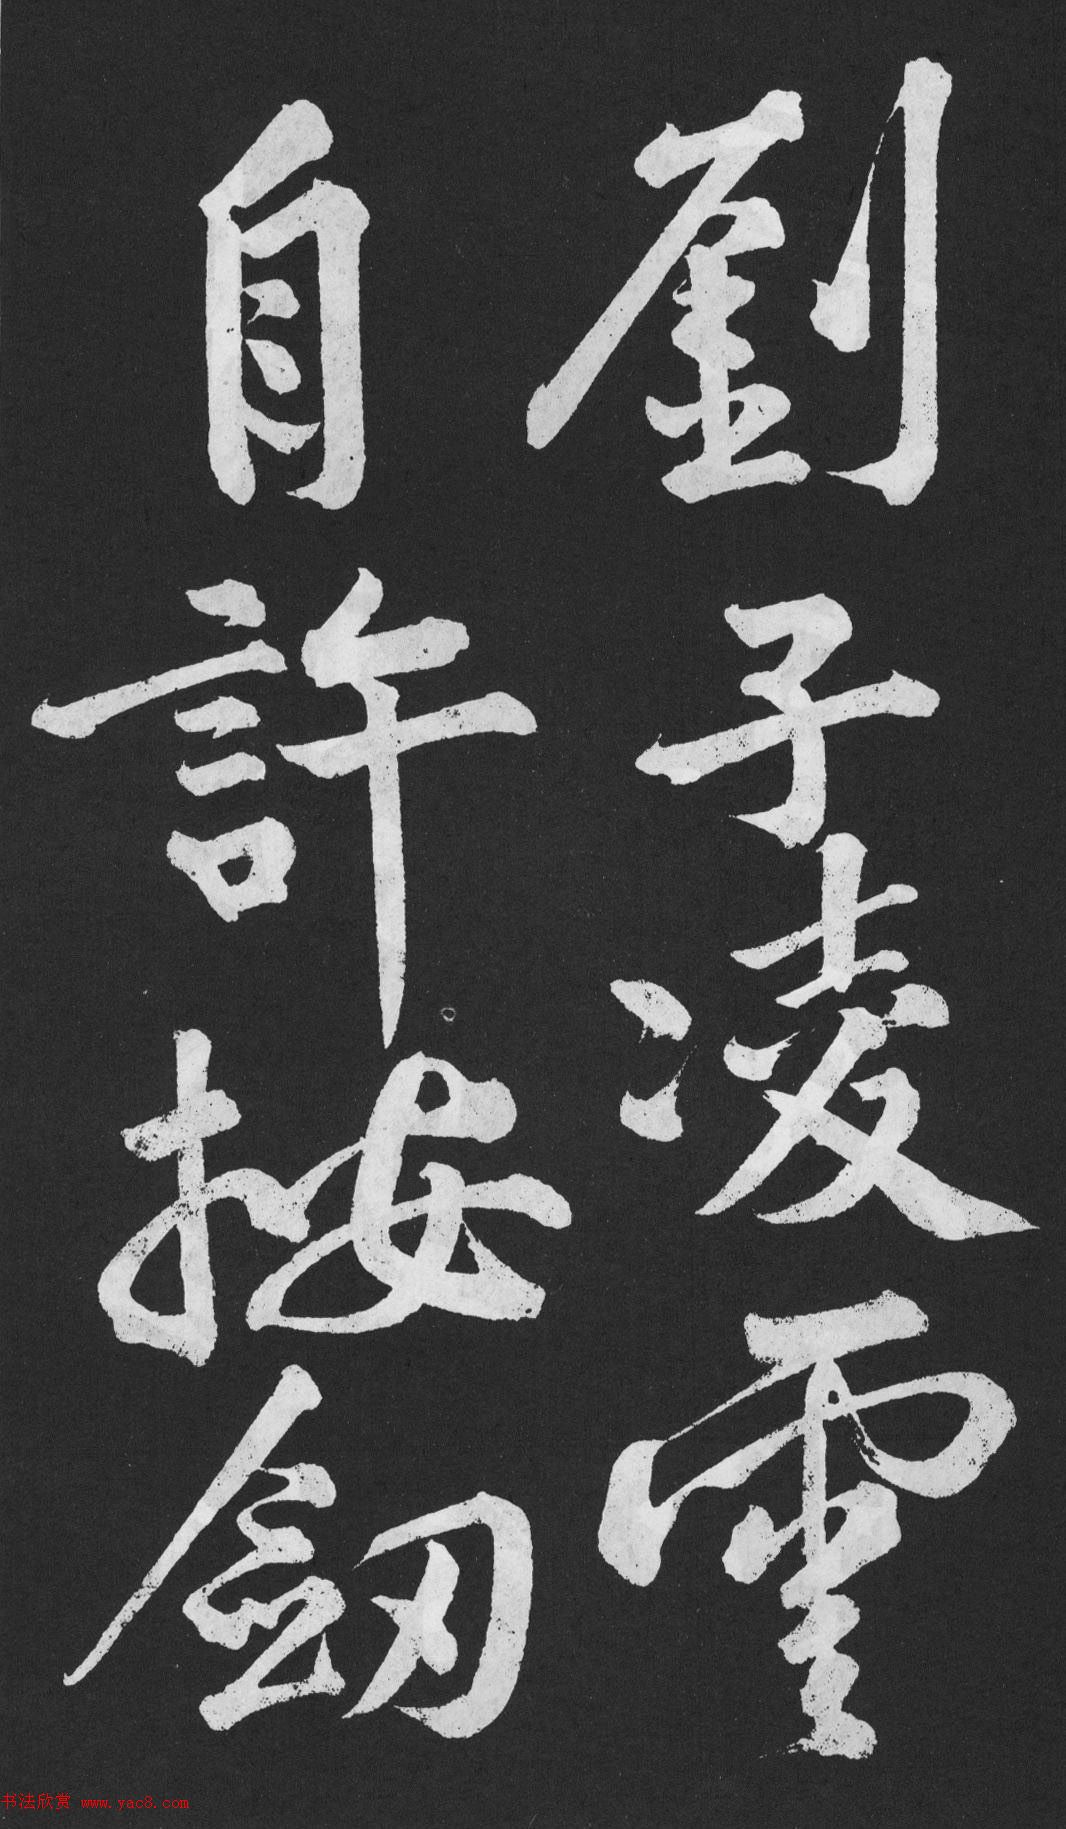 劉子凌
自許按劔
书法欣赏 www.yac8.com